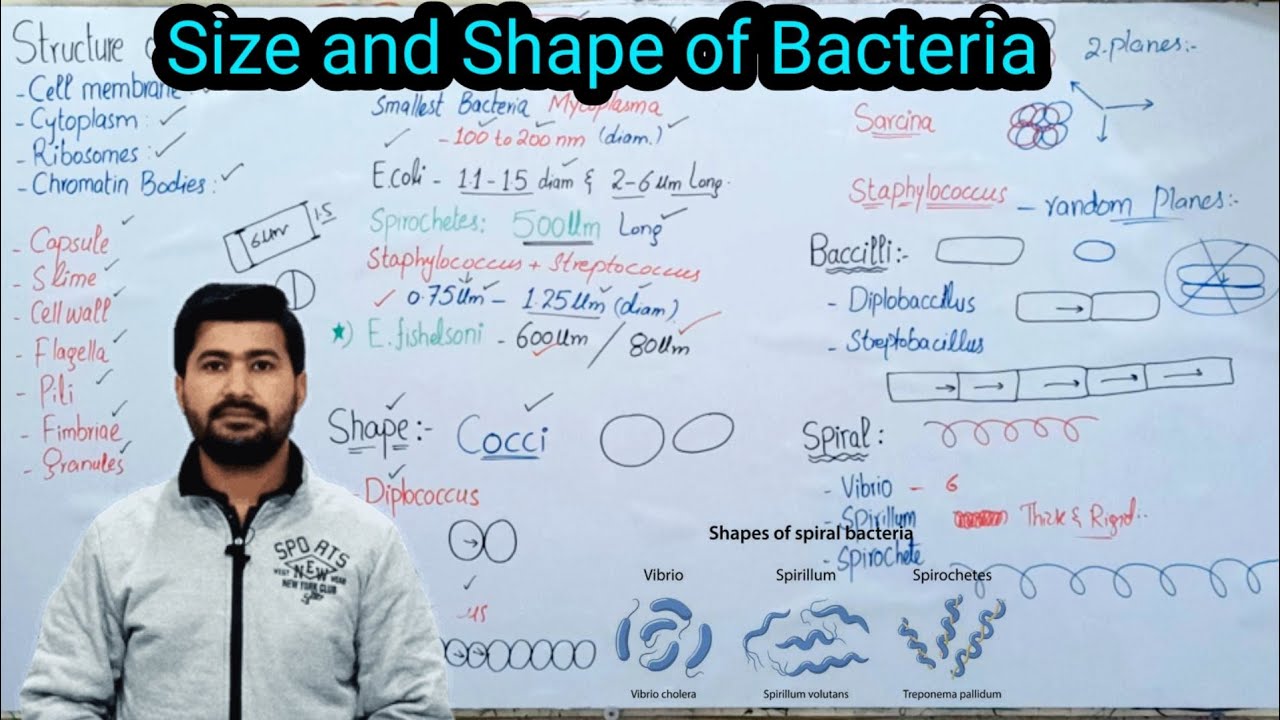 Size and Shape of Bacteria
Structure
- Cell membrane:
- Cytoplasm:
- Ribosomes:
- Chromatin Bodies:
- Capsule
- Slime
- Cell wall
- Flagella
- Pili
- Fimbriae
- Granules
6um
1.5
Smallest Bacteria Mycoplasma
- 100 to 200 nm (diam.)
E.coli - 1.1-1.5 diam & 2-6 um Long.
Spirochetes: 500um Long
Staphylococcus + Streptococcus
0.75um - 1.25um (diam).
*) E. fishelsoni - 600um / 80um
Shape:- Cocci
- Diplococcus
-us
2-planes:-
Sarcina
Staphylococcus - random Planes:-
Baccilli:-
- Diplobaccillus
- Streptobacillus
Spiral:
- Vibrio - 6
- Spirillum Thick & Rigid:.
- Spirochete
Shapes of spiral bacteria
Vibrio Spirillum Spirochetes
Vibrio cholera Spirillum volutans Treponema pallidum
SPORTS
WEST NEW WEAR
NEW YORK CLUB